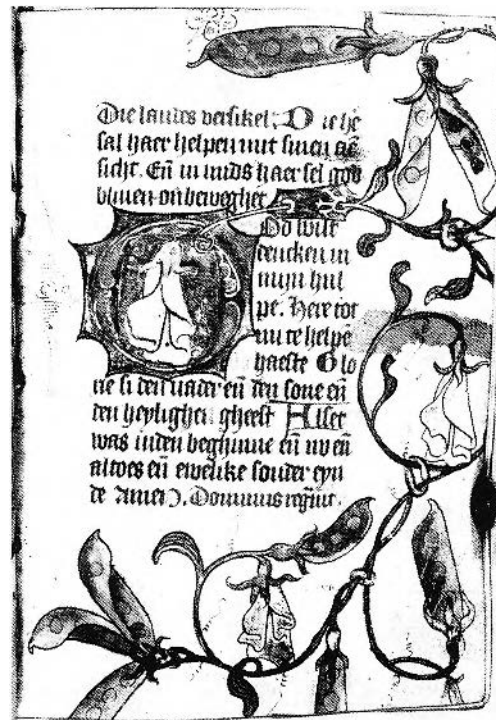 Die laudes versikel. Die he
sal haer helpen mit sinen aē
sicht. Eñ in mids haer sel god
bliuen onbeweghet
God wilt
dencken in
mijn hul
pe. Here tot
mi te helpē
haeste Glo
rie si den uader eñ den sone eñ
den heylighen gheest Alset
was inden beghinne eñ nv eñ
altoes eñ ewelike sonder eyn
de Amen. Dominus regnuit.